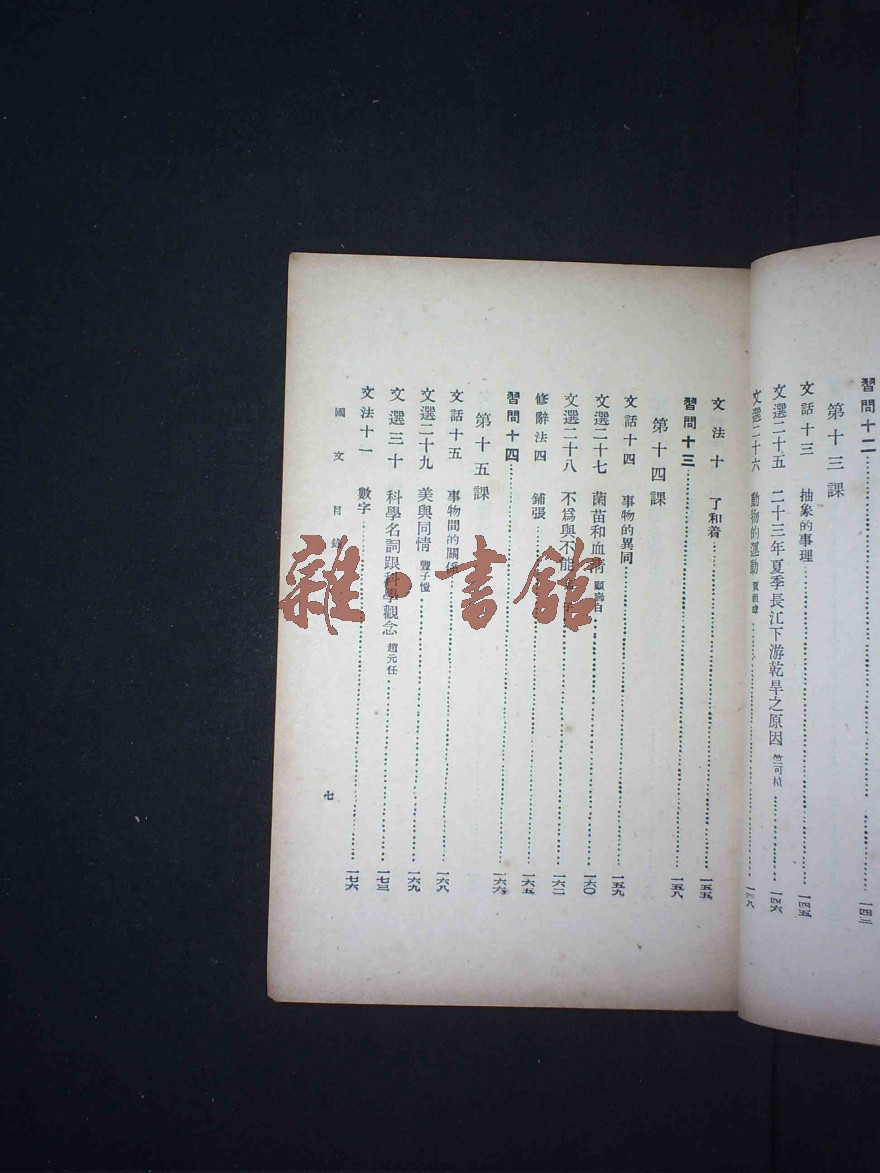 習問十二 一四三
第十三課
文話十三 抽象的事理 一四五
文選二十五 二十三年夏季長江下游乾旱之原因 竺可楨 一四六
文選二十六 動物的運動 賈祖璋 一四八
文法十 了和着 一五五
習問十三 一五八
第十四課
文話十四 事物的異同 一五九
文選二十七 菌苗和血清 顧壽白 一六〇
文選二十八 不爲與不能 一六二
修辭法四 鋪張 一六五
習問十四 一六六
第十五課
文話十五 事物間的關係 一六八
文選二十九 美與同情 豐子愷 一六九
文選三十 科學名詞跟科學觀念 趙元任 一七三
文法十一 數字 一七六
國文 目錄 七
雜·書館